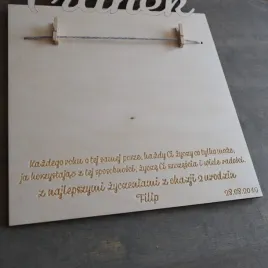 Każdego roku o tej samej porze, każdy Ci życzy co tylko może,
ja korzystając z tej sposobności, życzę Ci szczęścia i wiele radości.
z najlepszymi życzeniami z okazji 2 urodzin
Filip
28.08.2019